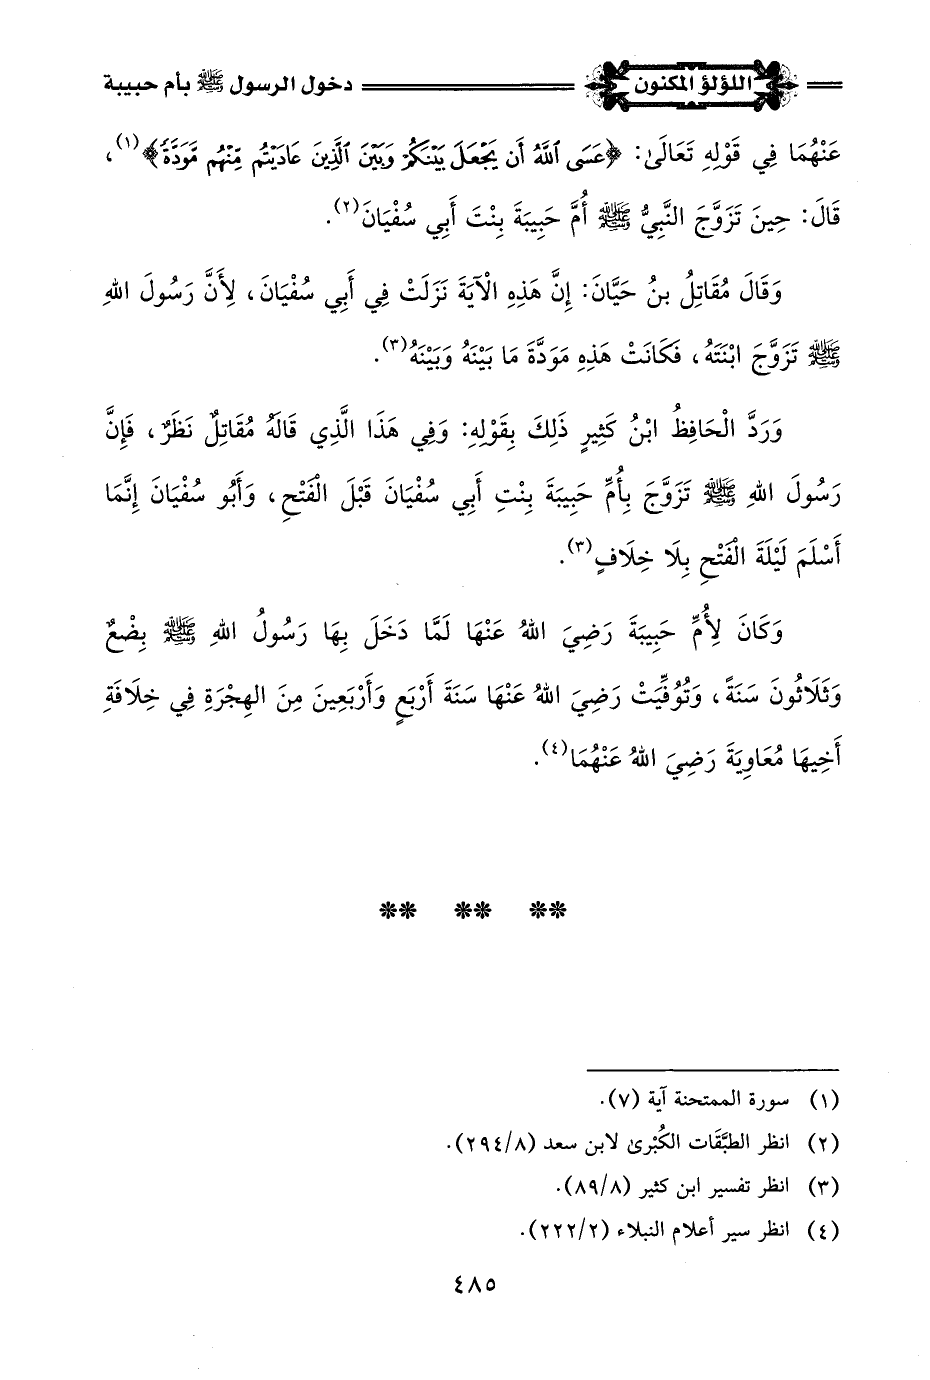 اللؤلؤ المكنون دخول الرسول ﷺ بأم حبيبة
عَنْهُمَا فِي قَوْلِهِ تَعَالَىٰ: ﴿عَسَى ٱللَّهُ أَن يَجْعَلَ بَيْنَكُمْ وَبَيْنَ ٱلَّذِينَ عَادَيْتُم مِّنْهُم مَّوَدَّةً﴾(١)،
قَالَ: حِينَ تَزَوَّجَ النَّبِيُّ ﷺ أُمَّ حَبِيبَةَ بِنْتَ أَبِي سُفْيَانَ(٢).
وَقَالَ مُقَاتِلُ بنُ حَيَّانَ: إِنَّ هَذِهِ الْآيَةَ نَزَلَتْ فِي أَبِي سُفْيَانَ، لِأَنَّ رَسُولَ اللهِ
ﷺ تَزَوَّجَ ابْنَتَهُ، فَكَانَتْ هَذِهِ مَوَدَّةَ مَا بَيْنَهُ وَبَيْنَهُ(٣).
وَرَدَّ الْحَافِظُ ابْنُ كَثِيرٍ ذَلِكَ بِقَوْلِهِ: وَفِي هَذَا الَّذِي قَالَهُ مُقَاتِلٌ نَظَرٌ، فَإِنَّ
رَسُولَ اللهِ ﷺ تَزَوَّجَ بِأُمِّ حَبِيبَةَ بِنْتِ أَبِي سُفْيَانَ قَبْلَ الْفَتْحِ، وَأَبُو سُفْيَانَ إِنَّمَا
أَسْلَمَ لَيْلَةَ الْفَتْحِ بِلَا خِلَافٍ(٣).
وَكَانَ لِأُمِّ حَبِيبَةَ رَضِيَ اللهُ عَنْهَا لَمَّا دَخَلَ بِهَا رَسُولُ اللهِ ﷺ بِضْعٌ
وَثَلَاثُونَ سَنَةً، وَتُوُفِّيَتْ رَضِيَ اللهُ عَنْهَا سَنَةَ أَرْبَعٍ وَأَرْبَعِينَ مِنَ الهِجْرَةِ فِي خِلَافَةِ
أَخِيهَا مُعَاوِيَةَ رَضِيَ اللهُ عَنْهُمَا(٤).
** ** **
(١) سورة الممتحنة آية (٧).
(٢) انظر الطبَّقَات الكُبْرىٰ لابن سعد (٢٩٤/٨).
(٣) انظر تفسير ابن كثير (٨٩/٨).
(٤) انظر سير أعلام النبلاء (٢٢٢/٢).
٤٨٥